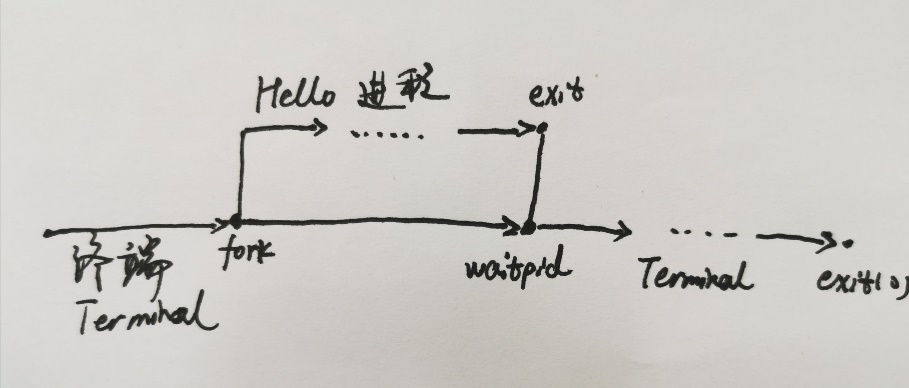 Hello 进程
exit
fork
终端
Terminal
waitpid
Terminal
exit(0)